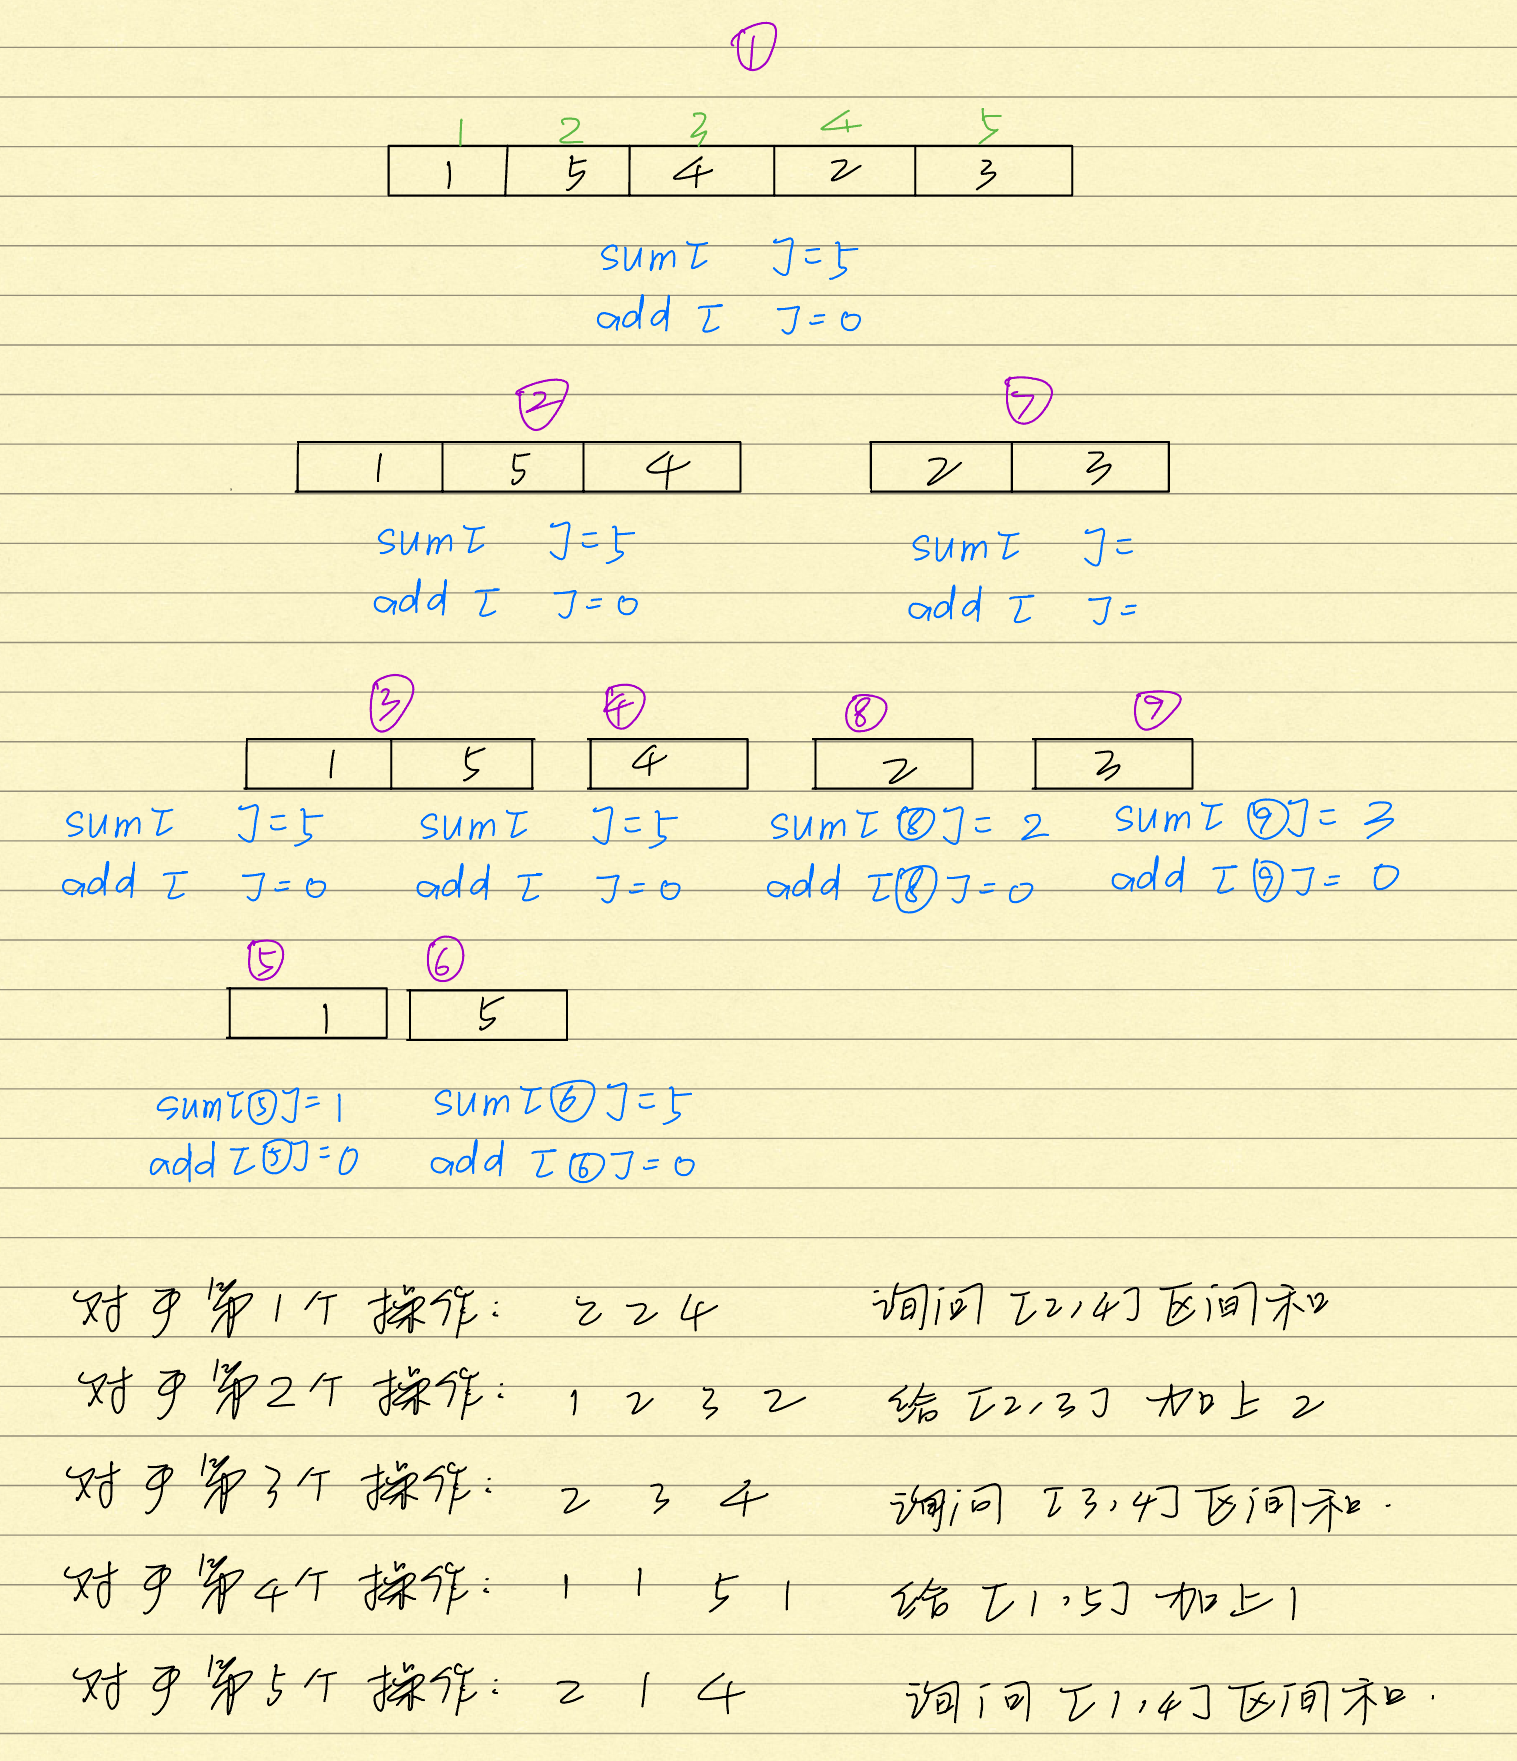 ①
1 2 3 4 5
1 5 4 2 3
sum[ ]=5
add [ ]=0
② ⑦
1 5 4 2 3
sum[ ]=5 sum[ ]=
add [ ]=0 add [ ]=
③ ④ ⑧ ⑨
1 5 4 2 3
sum[ ]=5 sum[ ]=5 sum[⑧]=2 sum[⑨]=3
add [ ]=0 add [ ]=0 add [⑧]=0 add [⑨]=0
⑤ ⑥
1 5
sum[⑤]=1 sum[⑥]=5
add [⑤]=0 add [⑥]=0
对于第1个操作: 2 2 4 询问[2,4]区间和
对于第2个操作: 1 2 3 2 给[2,3]加上2
对于第3个操作: 2 3 4 询问[3,4]区间和.
对于第4个操作: 1 1 5 1 给[1,5]加上1
对于第5个操作: 2 1 4 询问[1,4]区间和.